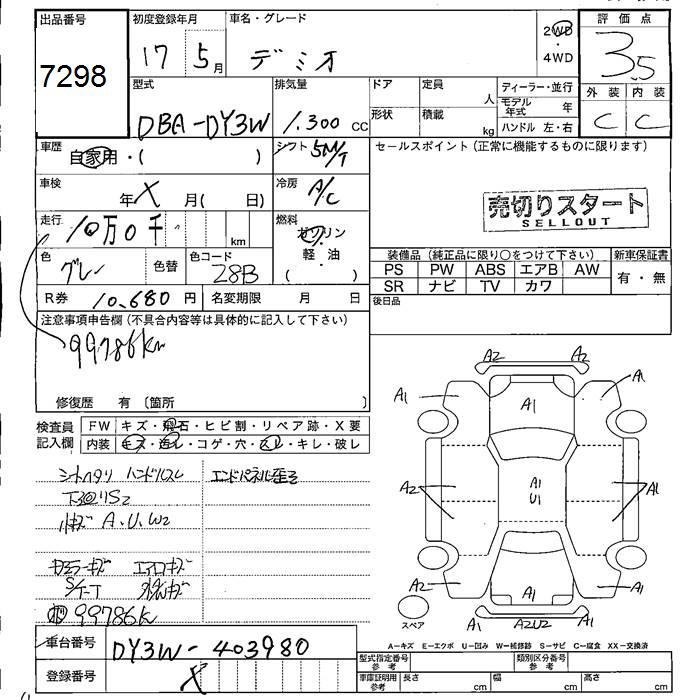 出品番号 初度登録年月 車名・グレード 評価点
7298 17 5月 デミオ 2WD・4WD 3.5
型式 排気量 ドア 定員 人 ディーラー・並行 外装 内装
DBA-DY3W 1.300 CC 形状 積載 kg モデル年式 年 C C
ハンドル 左・右
車歴 自家用・( ) シフト 5M/T セールスポイント(正常に機能するものに限ります)
車検 年 X 月( 日) 冷房 A/C
売切りスタート
SELLOUT
走行 10万0千 km 燃料 ガソリン・軽油 ( )
色 グレー 色替 色コード 28B
装備品(純正品に限り○をつけて下さい) 新車保証書
PS PW ABS エアB AW 有・無
SR ナビ TV カワ
R券 10,680円 名変期限 月 日 後日品
注意事項申告欄(不具合内容等は具体的に記入して下さい)
99786km
修復歴 有 〔箇所 〕
検査員記入欄 FW キズ・飛石・ヒビ割・リペア跡・X要
内装 キズ・汚レ・コゲ・穴・スレ・キレ・破レ
シートヘタリ ハンドルスレ エンドパネル歪ミ
下廻りS2
A.U.W2
エアロキズ
S/T-T
99786k
A2 A2
A1 A1 A1
A2 A1 U1 A1
A2 A1 A1
スペア A1 A2U2 A1
A-キズ E-エクボ U-凹み W-補修跡 S-サビ C-腐食 XX-交換済
車台番号 DY3W-403980 型式指定番号 参考 類別区分番号 参考
登録番号 X 車庫証明用 参考 長さ cm 幅 cm 高さ cm